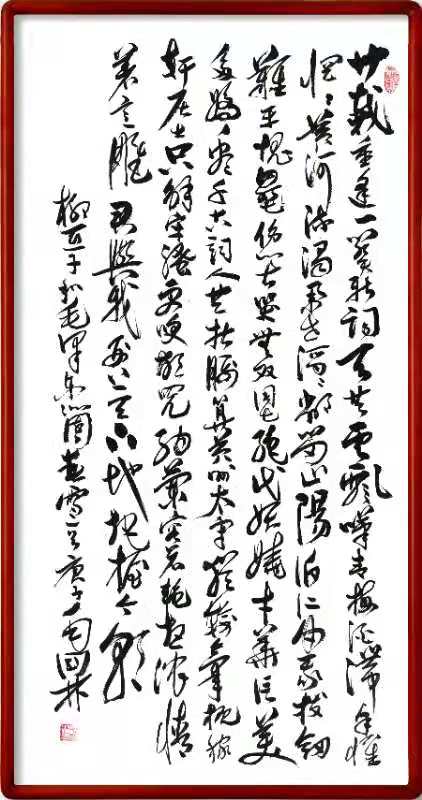 廿载重逢一阕新词意共云飘嘆青梅酒滞余怀
惘惘黄河流濁举世滔滔邻笛山陽伯仁由我拔劍
難平塊壘伤心哭無双國士绝代妖娆才華信美
多娇看千古詞人共折腰算黄州太守猶输气概稼
轩居士只解牢骚更笑胡兒纳蘭容若艳想浓情
着意雕君與我要上天下地把握今朝
柳亚子和毛泽东沁园春雪庚子